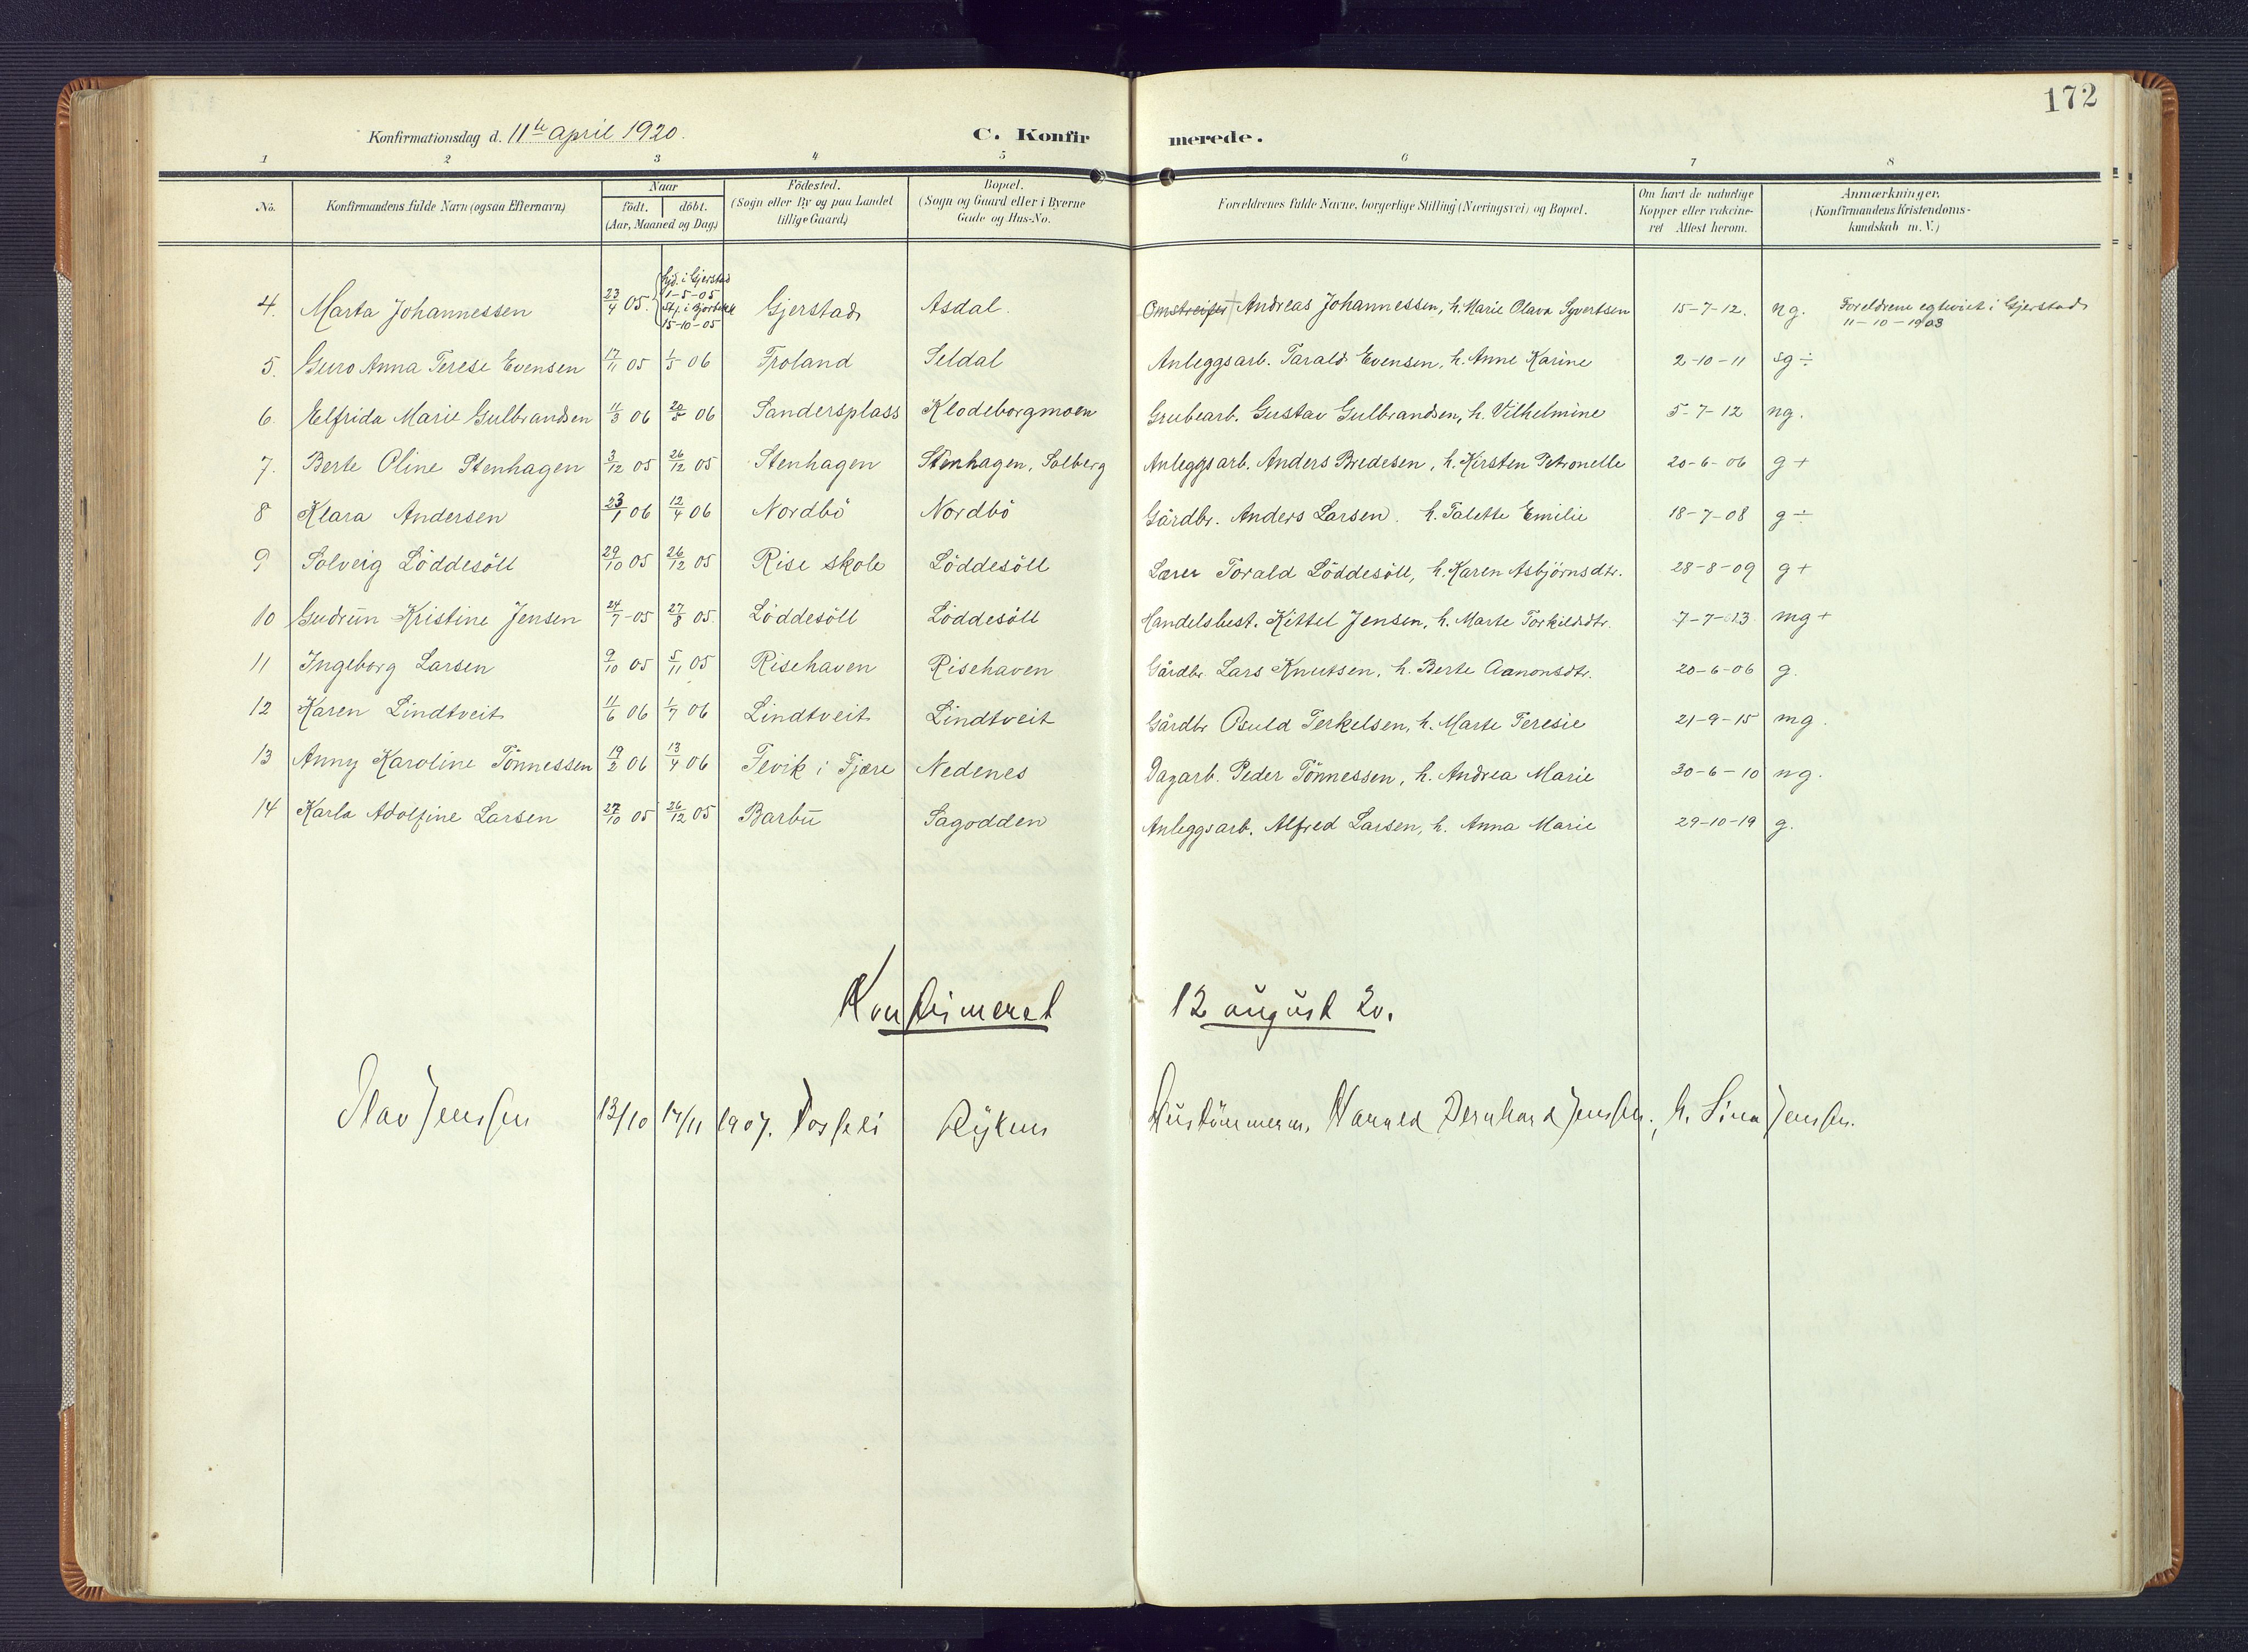 172
Konfirmationsdag d. 11te april 1920.
C. Konfirmerede.
1 2 3 4 5 6 7 8
No. Konfirmandens fulde Navn (ogsaa Efternavn) Naar födt. döbt. (Aar, Maaned og Dag) Födested. (Sogn eller By og paa Landet tillige Gaard) Bopæl. (Sogn og Gaard eller i Byerne Gade og Hus-No. Forældrenes fulde Navne, borgerlige Stilling (Næringsvei) og Bopæl. Om havt de naturlige Kopper eller vakcineret Attest herom. Anmærkninger. (Konfirmandens Kristendomskundskab m. V.)
4. Marta Johannessen 23/4 05. hjd. i Gjerstad 1-5-05 stf. i 15-10-05 Gjerstad Asdal. Omstreifer Andreas Johannessen, h. Marie Olava Syvertsen 15-7-12. ng. Foreldrene egteviet i Gjerstad 11-10-1903
5. Guro Anna Terese Evensen 17/11 05 1/5 06 Froland Seldal Anleggsarb. Tarald Evensen, h. Anne Karine 2-10-11 sg ÷
6. Elfrida Marie Gulbrandsen 11/3 06 20/5 06 Sandersplass Klodeborgmoen Grubearb. Gustav Gulbrandsen, h. Vilhelmine 5-7-12 ng.
7. Berte Oline Stenhagen 3/12 05 26/12 05 Stenhagen Stenhagen, Solberg Anleggsarb. Anders Bredesen, h. Kirsten Petronelle 20-6-06 g +
8 Klara Andersen 23/1 06 12/4 06 Nordbö Nordbö Gårdbr. Anders Larsen. h. Talette Emilie 18-7-08 g ÷
9 Solveig Löddesöll 29/10 05 26/12 05 Rise skole Löddesöll Lærer Torald Löddesöll, h. Karen Asbjörnsdtr. 28-8-09 g +
10 Gudrun Kristine Jensen 24/7 05 27/8 05. Löddesöll Löddesöll Handelsbest. Kittel Jensen, h. Marte Torkildsdtr. 7-7-13 mg +
11 Ingeborg Larsen 9/10 05 5/11 05 Risehaven Risehaven Gårdbr. Lars Knutsen, h. Berte Aanonsdtr. 20-6-06 g.
12 Karen Lindtveit 11/6 06 1/7 06 Lindtveit Lindtveit Gårdbr Osuld Terkelsen, h. Marte Teresie 21-9-15 mg.
13 Anny Karoline Tönnessen 19/2 06 13/4 06 Fevik i Fjære Nedenes Dagarb. Peder Tönnessen, h. Andrea Marie 30-6-10 ng.
14 Karla Adolfine Larsen 27/10 05 26/12 05 Barbu Sagodden Anleggsarb. Alfred Larsen, h. Anna Marie 29-10-19 g.
Konfirmeret 12 august 20.
Olav Jenssen 13/10 17/11 1907. Rykene Hustömmerm. Harald Bernhard Jenssen, h. Sina Jenssen.